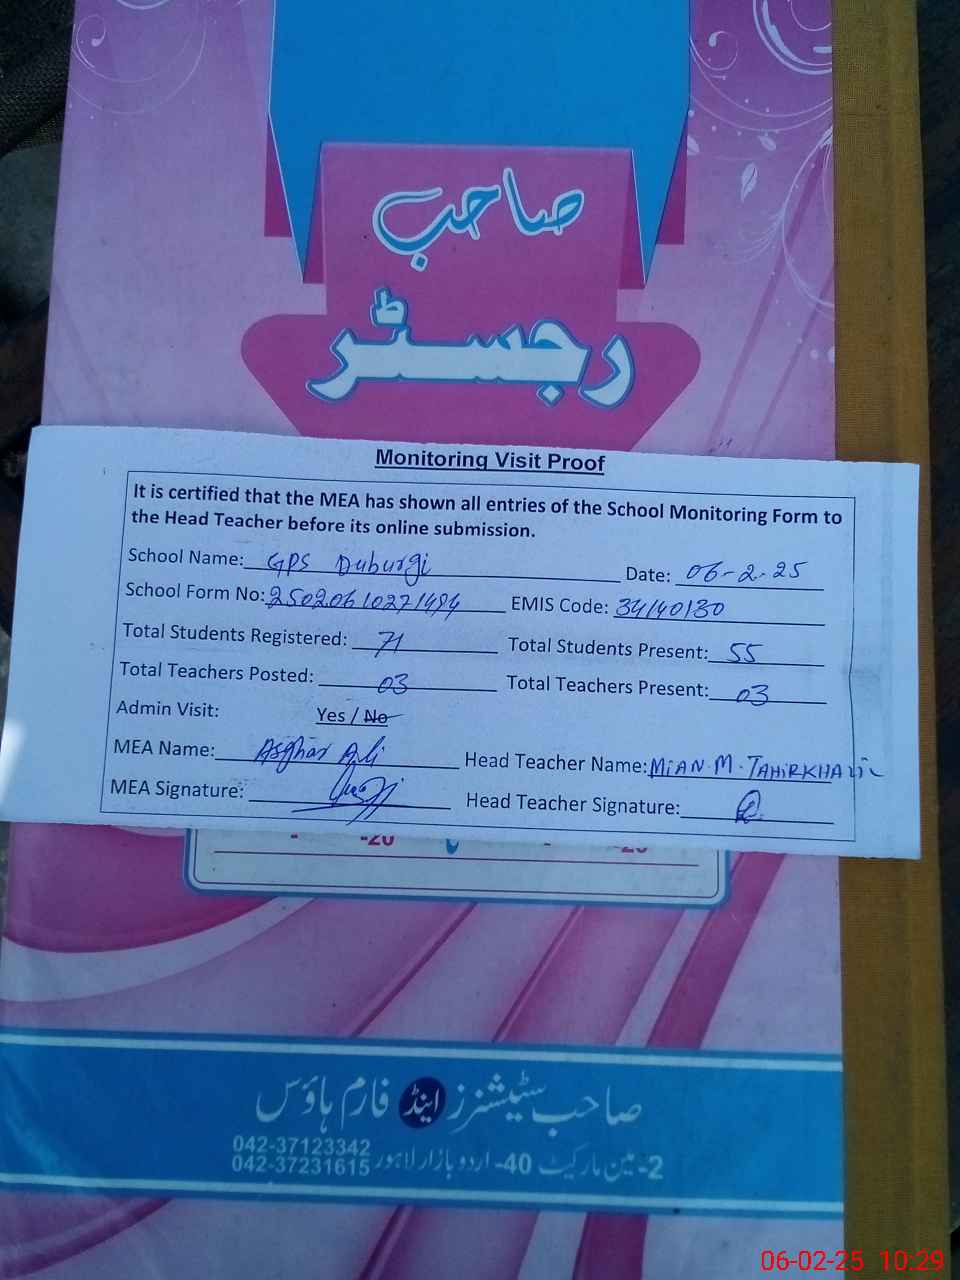 صاحب
رجسٹر
Monitoring Visit Proof
It is certified that the MEA has shown all entries of the School Monitoring Form to
the Head Teacher before its online submission.
School Name: GPS Duburgi Date: 06-2-25
School Form No: 25020610271494 EMIS Code: 34140130
Total Students Registered: 71 Total Students Present: 55
Total Teachers Posted: 03 Total Teachers Present: 03
Admin Visit: Yes / No
MEA Name: Asghar Ali Head Teacher Name: MIAN.M.TAHIRKHALIL
MEA Signature: Head Teacher Signature:
-20 -20
صاحب سٹیشنرز اینڈ فارم ہاؤس
2-مین مارکیٹ 40- اردو بازار لاہور 042-37123342
042-37231615
06-02-25 10:29